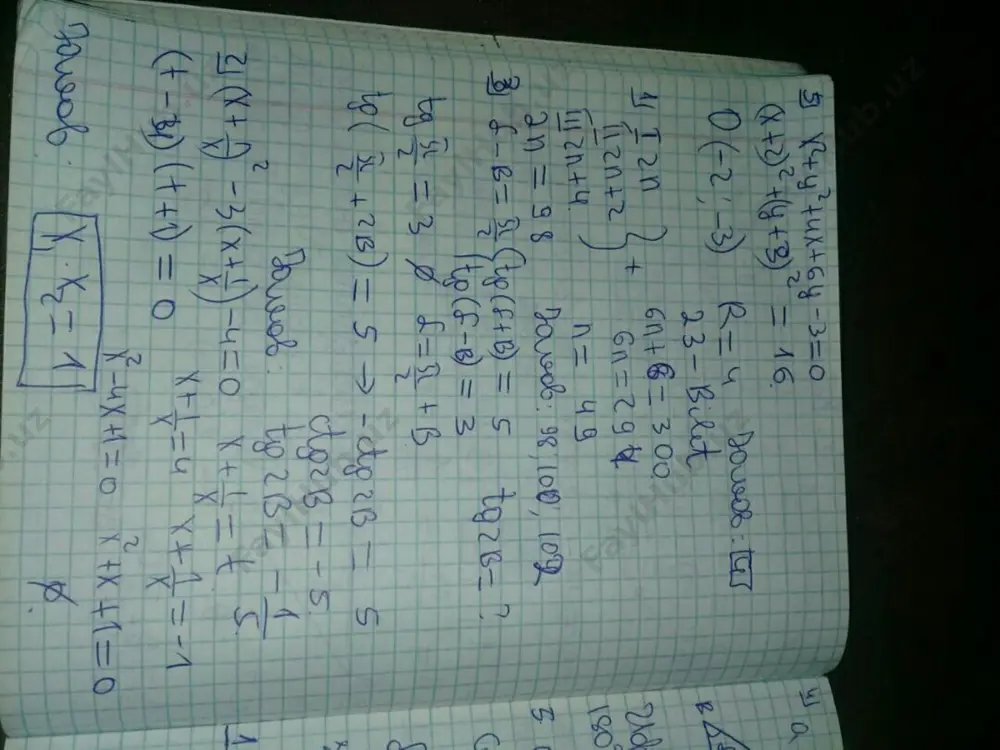 5) x²+y²+4x+6y-3=0
(x+2)²+(y+3)²=16
O(-2;-3) R=4 Javob: 4
23-Bilet
1) I 2n
II 2n+2
III 2n+4
} +
6n+6=300
6n=294
n=49
2n=98 Javob: 98, 100, 102
3) α-β=π/2 {tg(α+β)=5 tg2β=?
{tg(α-β)=3
tg π/2=3 ∅ α=π/2+β
tg(π/2+2β)=5 → -ctg2β=5
ctg2β=-5
Javob: tg2β=-1/5
2) (x+1/x)²-3(x+1/x)-4=0 x+1/x=t
(t-4)(t+1)=0 x+1/x=4 x+1/x=-1
x²-4x+1=0 x²+x+1=0
Javob: x₁·x₂=1 ∅
4) a
FayllHub.uz